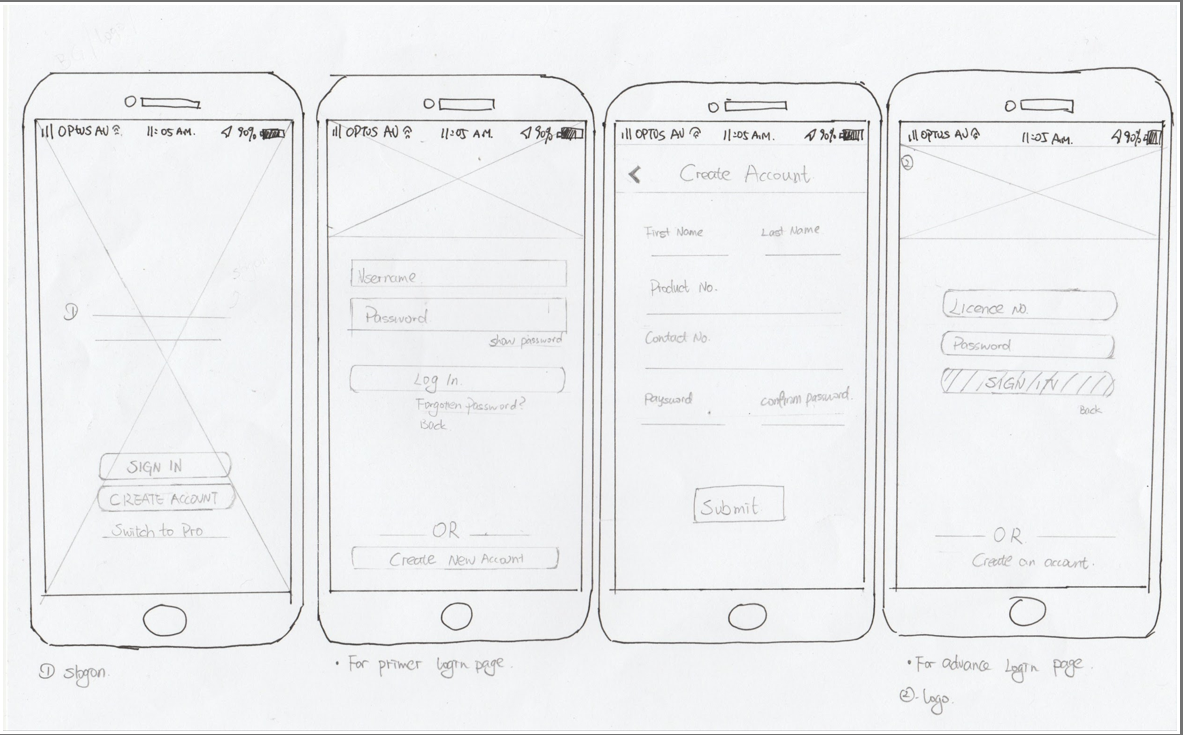 OPTUS AU 11:05 AM. 90%
①
SIGN IN
CREATE ACCOUNT
Switch to Pro
① slogan.
OPTUS AU 11:05 AM. 90%
Username
Password
show password
Log In.
Forgotten Password?
Back
OR
Create New Account
• For primer login page.
OPTUS AU 11:05 AM. 90%
< Create Account
First Name Last Name
Product No.
Contact No.
Password confirm password.
Submit
OPTUS AU 11:05 AM. 90%
②
Licence No.
Password
SIGN IN
Back
OR
Create an account.
• For advance Login page.
②. Logo.